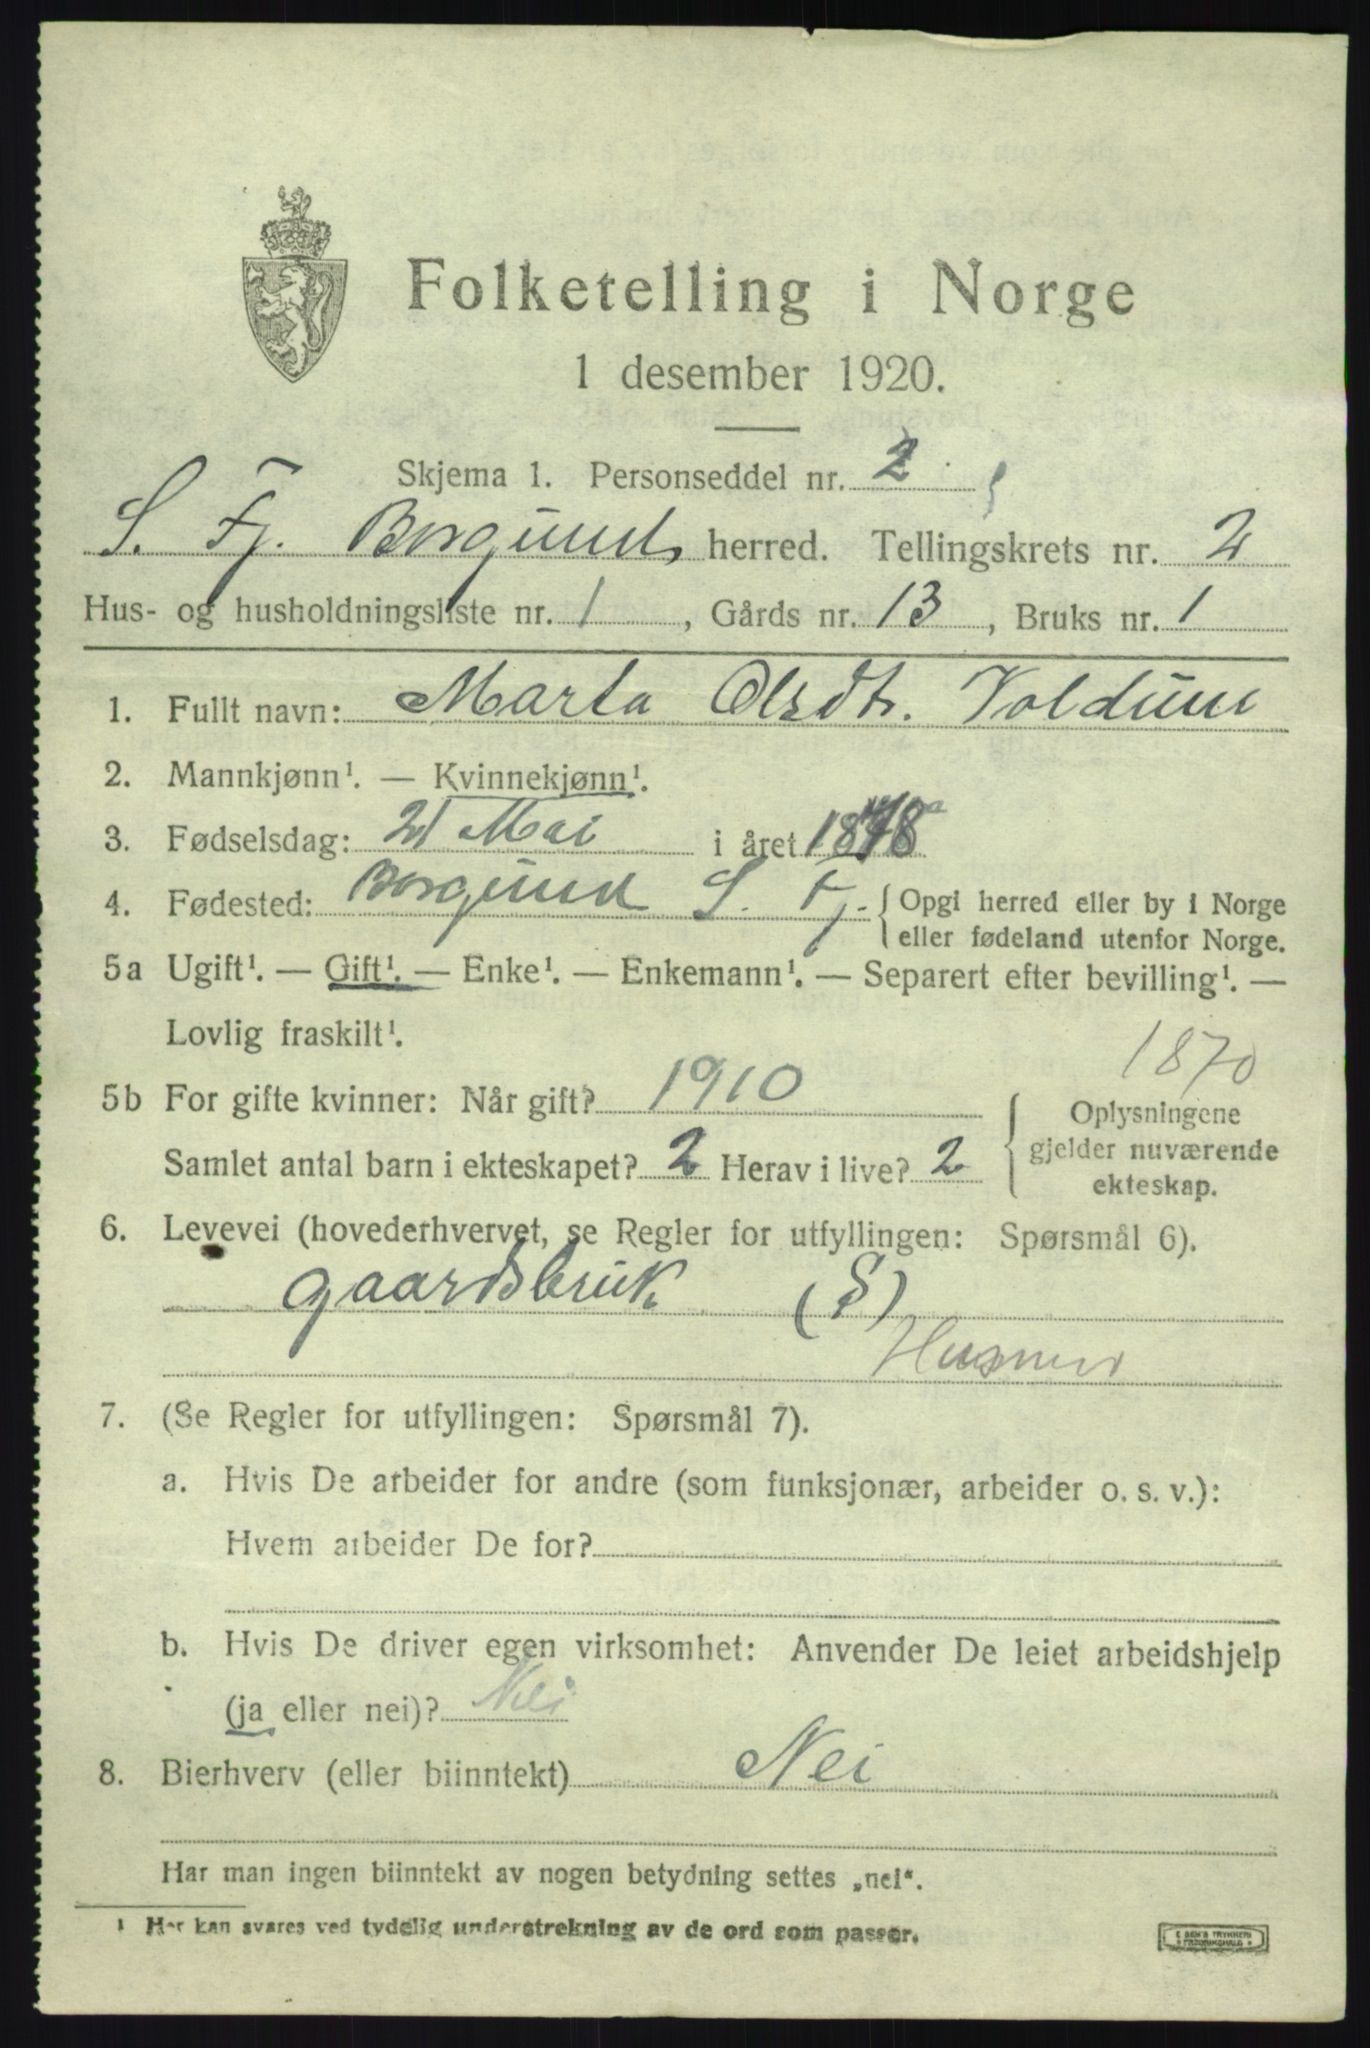 Folketelling i Norge
1 desember 1920.
Skjema 1. Personseddel nr. 2
S. Fj. Borgund herred. Tellingskrets nr. 2
Hus- og husholdningsliste nr. 1, Gårds nr. 13, Bruks nr. 1
1. Fullt navn: Marta Olsdtr. Voldum
2. Mannkjønn¹. — Kvinnekjønn¹.
3. Fødselsdag: 21 Mai i året 1878
4. Fødested: Borgund S. Fj. { Opgi herred eller by i Norge
eller fødeland utenfor Norge.
5a Ugift¹. — Gift¹. — Enke¹. — Enkemann¹. — Separert efter bevilling¹. —
Lovlig fraskilt¹.
1870
5b For gifte kvinner: Når gift? 1910
Oplysningene
gjelder nuværende
ekteskap.
Samlet antal barn i ekteskapet? 2 Herav i live? 2
6. Levevei (hovederhvervet, se Regler for utfyllingen: Spørsmål 6).
gaardsbruk (S)
Husmor
7. (Se Regler for utfyllingen: Spørsmål 7).
a. Hvis De arbeider for andre (som funksjonær, arbeider o. s. v.):
Hvem arbeider De for?
b. Hvis De driver egen virksomhet: Anvender De leiet arbeidshjelp
(ja eller nei)? Nei
8. Bierhverv (eller biinntekt) Nei
Har man ingen biinntekt av nogen betydning settes „nei“.
¹ Her kan svares ved tydelig understrekning av de ord som passer.